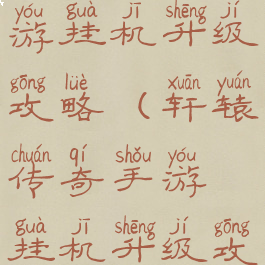 yóu guà jī shēng jí
游挂机升级
gōng lüè xuān yuán
攻略（轩辕
chuán qí shǒu yóu
传奇手游
guà jī shēng jí gōng
挂机升级攻